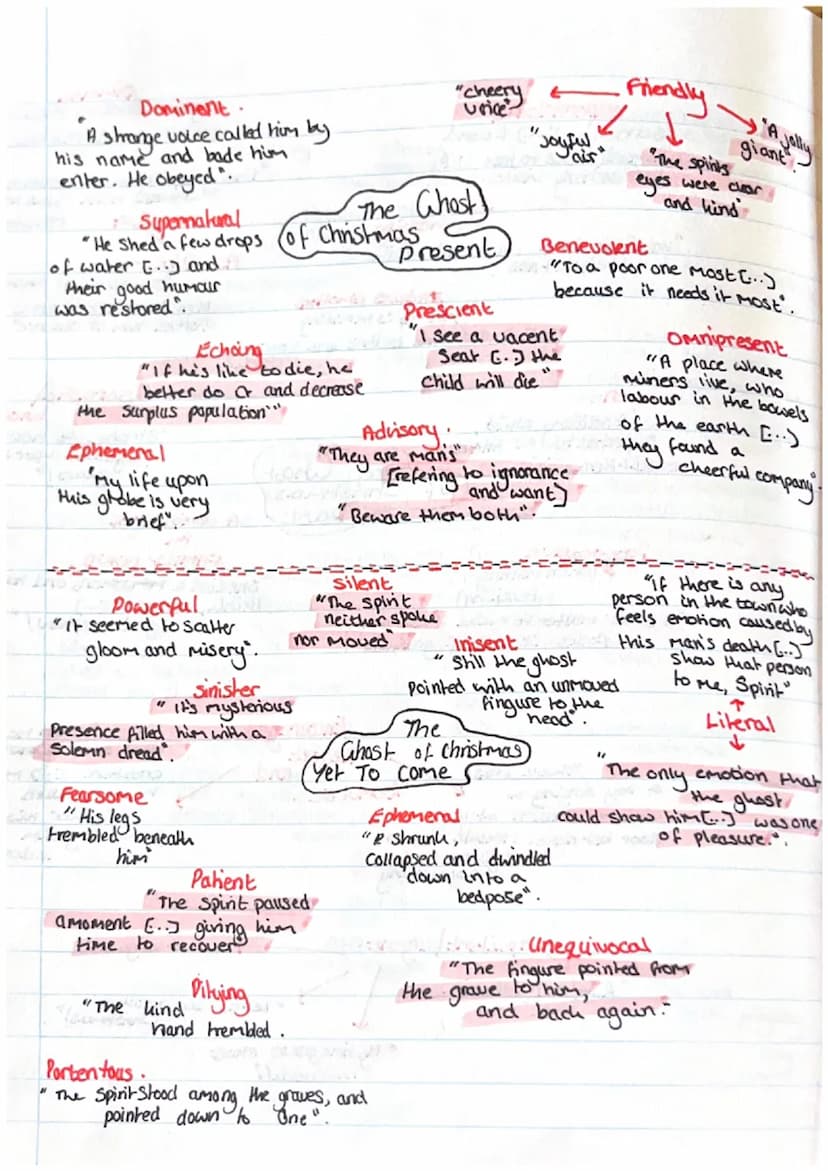 Dominent.
"A strange voice called him by
his name and bade him
enter. He obeyed".
Friendly
"cheery
voice"
"Joyful
air"
"The spirits
eyes were clear
and kind"
"A jolly
giant".
The Ghost
of Christmas
Present
Supernatural
"He shed a few drops
of water [...] and
their good humour
was restored"
Benevolent
"To a poor one most [...]
because it needs it most".
Prescient
"I see a vacent
seat [..] the
child will die"
Omnipresent
"A place where
miners live, who
labour in the bowels
of the earth [...]
they found a
cheerful company".
Echoing
"If he's like to die, he
better do it and decrease
the surplus population"
Advisory.
"They are man's"
[refering to ignorance
and want]
"Beware them both".
Ephemeral
"My life upon
this globe is very
brief"
Powerful
"it seemed to scatter
gloom and misery".
Silent
"The spirit
neither spoke
nor moved"
"If there is any
person in the town who
feels emotion caused by
this man's death [...]
show that person
to me, Spirit"
Literal
"The only emotion that
the ghost
could show him [...] was one
of pleasure.".
Inisent
"Still the ghost
pointed with an unmoved
fingure to the
head".
Sinister
"it's mysterious
presence filled him with a
solemn dread".
The
Ghost of Christmas
Yet To Come
Fearsome
"His legs
trembled beneath
him"
Ephemeral
shrunk,
collapsed and dwindled
down into a
bedpose".
Patient
"The spirit paused
a moment [...] giving him
time to recover"
Unequivocal
"The fingure pointed from
the grave to him,
and back again."
Pitying
"The kind
hand trembled.
Portentous.
"The Spirit stood among the graves, and
pointed down to One".